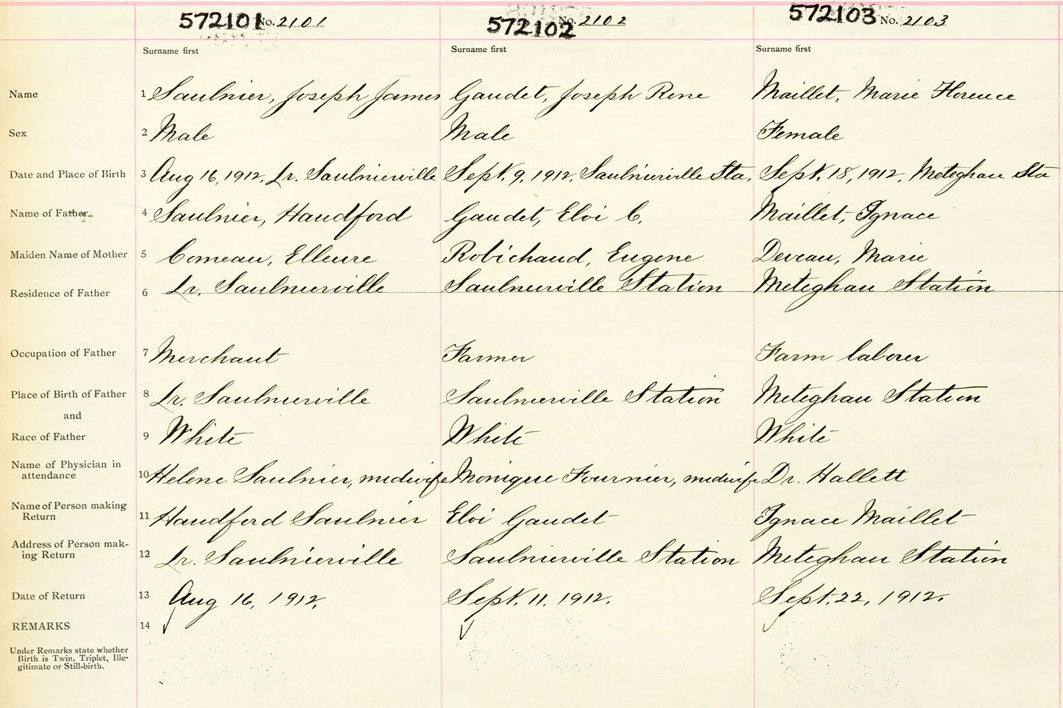 572101 No. 2101 572102 No. 2102 572103 No. 2103
Surname first Surname first Surname first
Name 1 Saulnier, Joseph James Gaudet, Joseph Rene Maillet, Marie Florence
Sex 2 Male Male Female
Date and Place of Birth 3 Aug 16, 1912, Lr. Saulnierville Sept. 9, 1912, Saulnierville Sta. Sept. 18, 1912, Meteghan Sta
Name of Father 4 Saulnier, Handford Gaudet, Eloi C. Maillet, Ignace
Maiden Name of Mother 5 Comeau, Elleure Robichaud, Eugene Deveau, Marie
Residence of Father 6 Lr. Saulnierville Saulnierville Station Meteghan Station
Occupation of Father 7 Merchant Farmer Farm laborer
Place of Birth of Father 8 Lr. Saulnierville Saulnierville Station Meteghan Station
and
Race of Father 9 White White White
Name of Physician in
attendance 10 Helene Saulnier, midwife Monique Fournier, midwife Dr. Hallett
Name of Person making
Return 11 Handford Saulnier Eloi Gaudet Ignace Maillet
Address of Person mak-
ing Return 12 Lr. Saulnierville Saulnierville Station Meteghan Station
Date of Return 13 Aug 16, 1912, Sept. 11. 1912. Sept. 22, 1912.
REMARKS 14
Under Remarks state whether
Birth is Twin, Triplet, Ille-
gitimate or Still-birth.